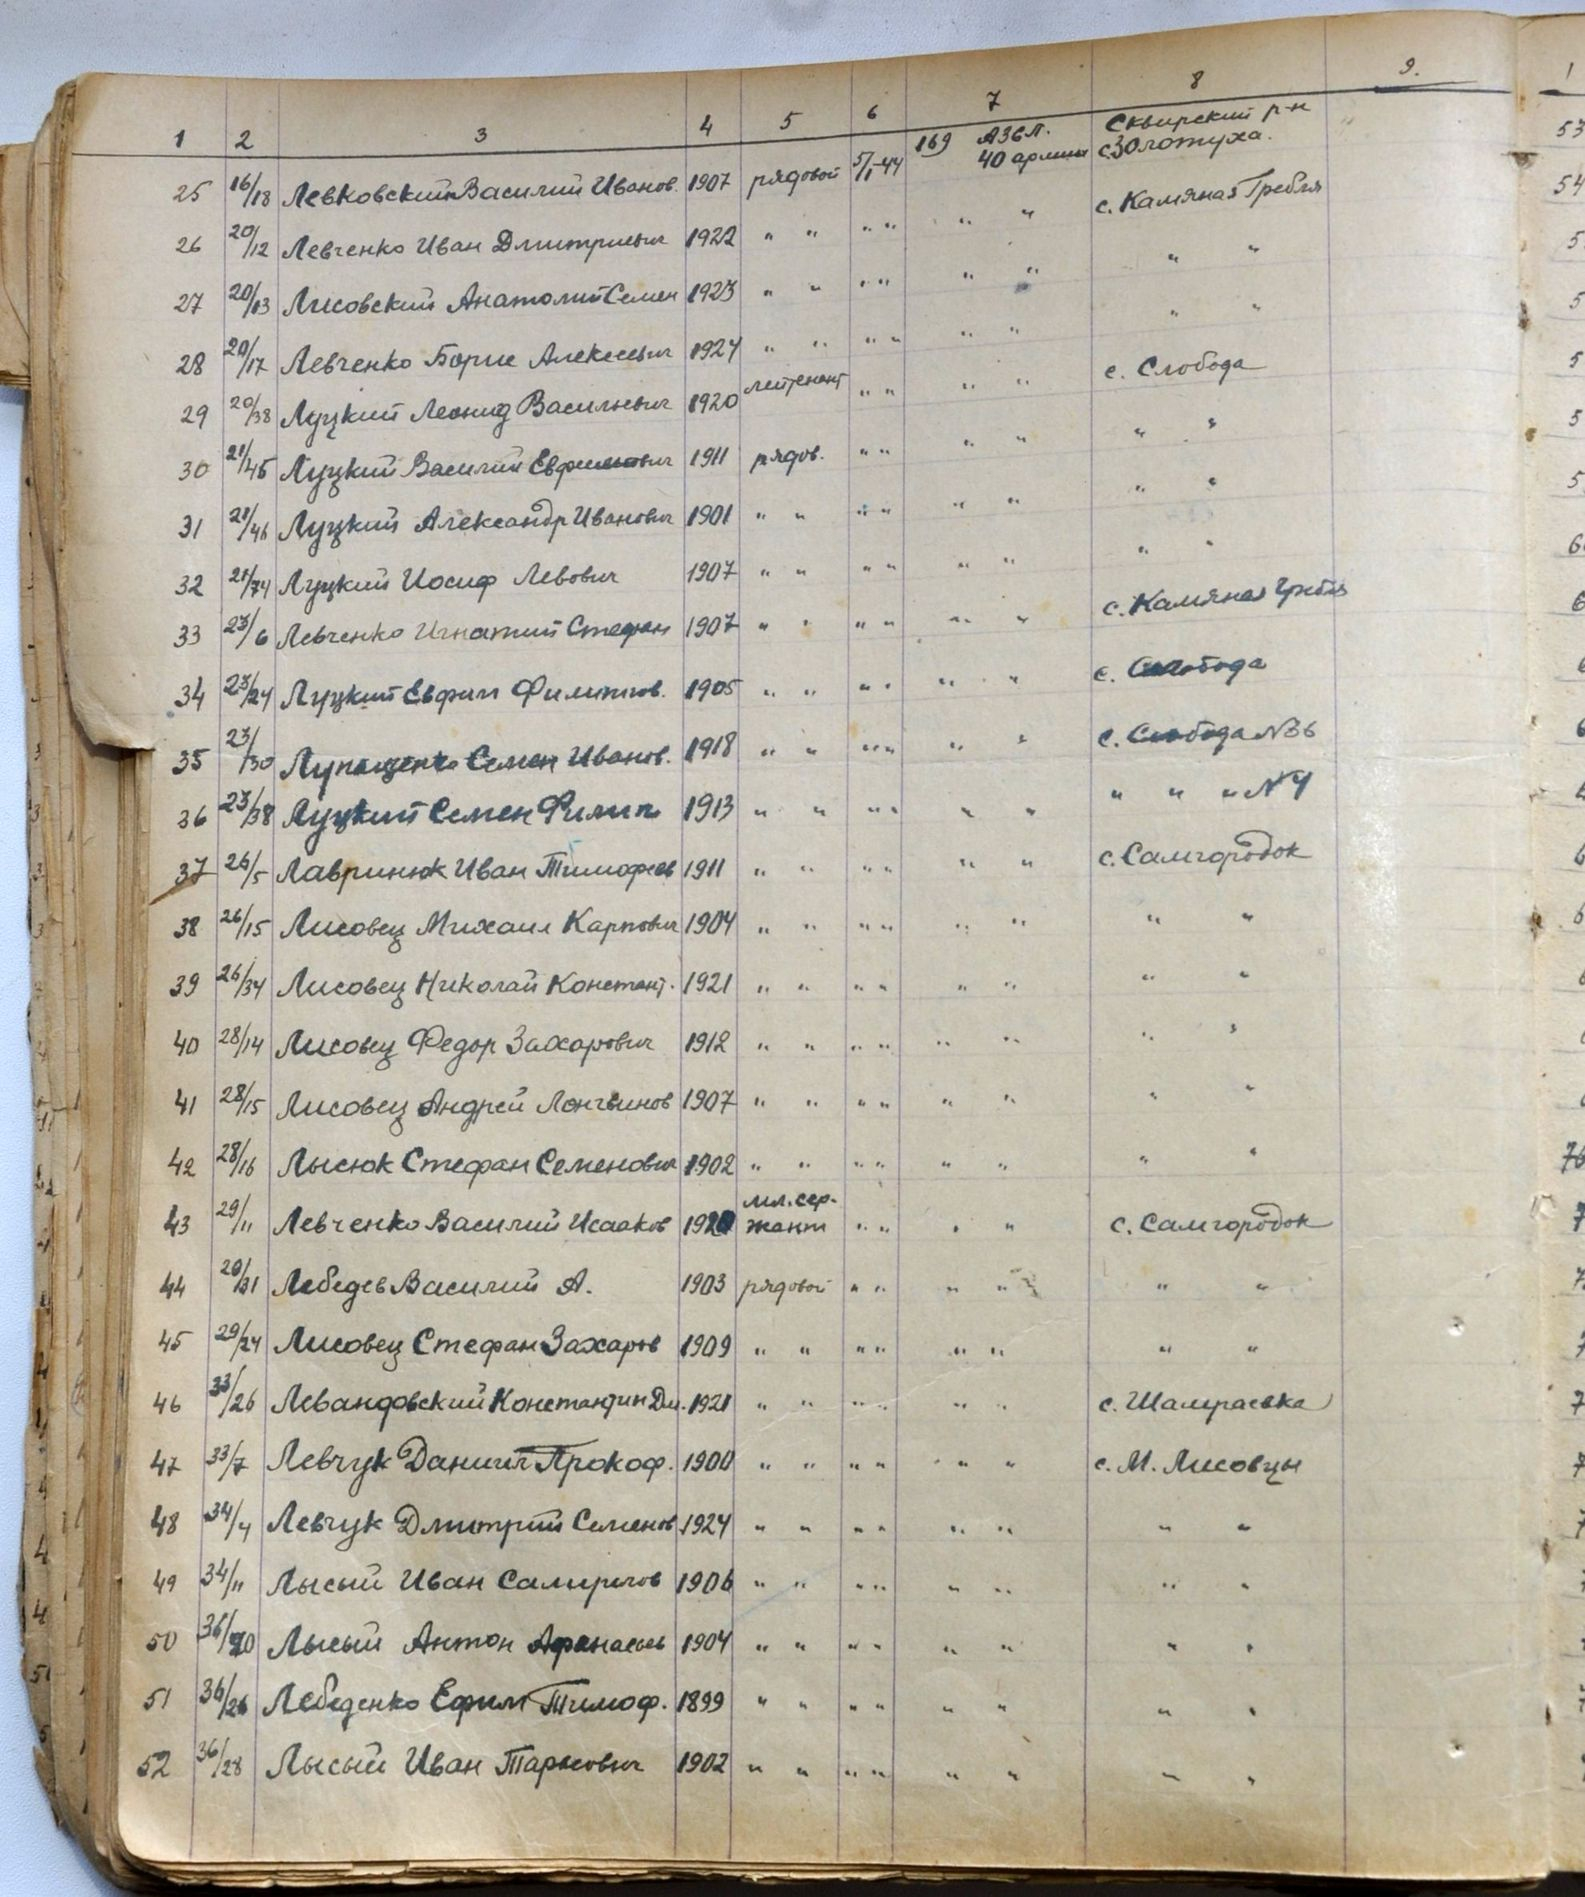 1 2 3 4 5 6 7 8 9.
25 16/18 Левковский Василий Иванов. 1907 рядовой 5/I-44 169 АЗСП. 40 армии Сквирский р-н с. Золотуха.
26 20/12 Левченко Иван Дмитриевич 1922 " " " " " " с. Камяная Гребля
27 20/13 Лисовский Анатолий Семен 1923 " " " " " " " "
28 20/17 Левченко Борис Алексеевич 1924 " " " " " " " "
29 20/38 Луцкий Леонид Васильевич 1920 лейтенант " " " " с. Слобода
30 21/45 Луцкий Василий Евфимович 1911 рядов. " " " " " "
31 21/46 Луцкий Александр Иванович 1901 " " " " " " " "
32 21/74 Луцкий Иосиф Левович 1907 " " " " " " " "
33 23/6 Левченко Игнатий Стефан 1907 " " " " " " с. Камяная Гребля
34 23/24 Луцкий Евфим Филиппов. 1905 " " " " " " с. Слобода
35 23/30 Семен Иванов. 1918 " " " " " " с. Слобода №6
36 23/38 Луцкий Семен Филип 1913 " " " " " " " " " №4
37 26/5 Лавринюк Иван Тимофеев 1911 " " " " " " с. Самгородок
38 26/15 Лисовец Михаил Карпович 1904 " " " " " " " "
39 26/34 Лисовец Николай Констант. 1921 " " " " " " " "
40 28/14 Лисовец Федор Захарович 1912 " " " " " " " "
41 28/15 Лисовец Андрей Лонгвинов 1907 " " " " " " " "
42 28/16 Лысюк Стефан Семенович 1902 " " " " " " " "
43 29/11 Левченко Василий Исааков 1920 мл. сер-
жант " " " " с. Самгородок
44 Лебедев Василий А. 1903 рядовой " " " " " "
45 29/24 Лисовец Стефан Захаров 1909 " " " " " " " "
46 33/26 Левандовский Константин Дм. 1921 " " " " " " с. Шамраевка
47 33/7 Левчук Даниил Прокоф. 1900 " " " " " " с. М. Лисовцы
48 34/4 Левчук Дмитрий Семенов 1924 " " " " " " " "
49 34/11 Лысый Иван 1906 " " " " " " " "
50 36/20 Лысый Антон Афанасьев 1904 " " " " " " " "
51 36/26 Лебеденко Ефим Тимоф. 1899 " " " " " " " "
52 36/28 Лысый Иван Тарасович 1902 " " " " " " " "